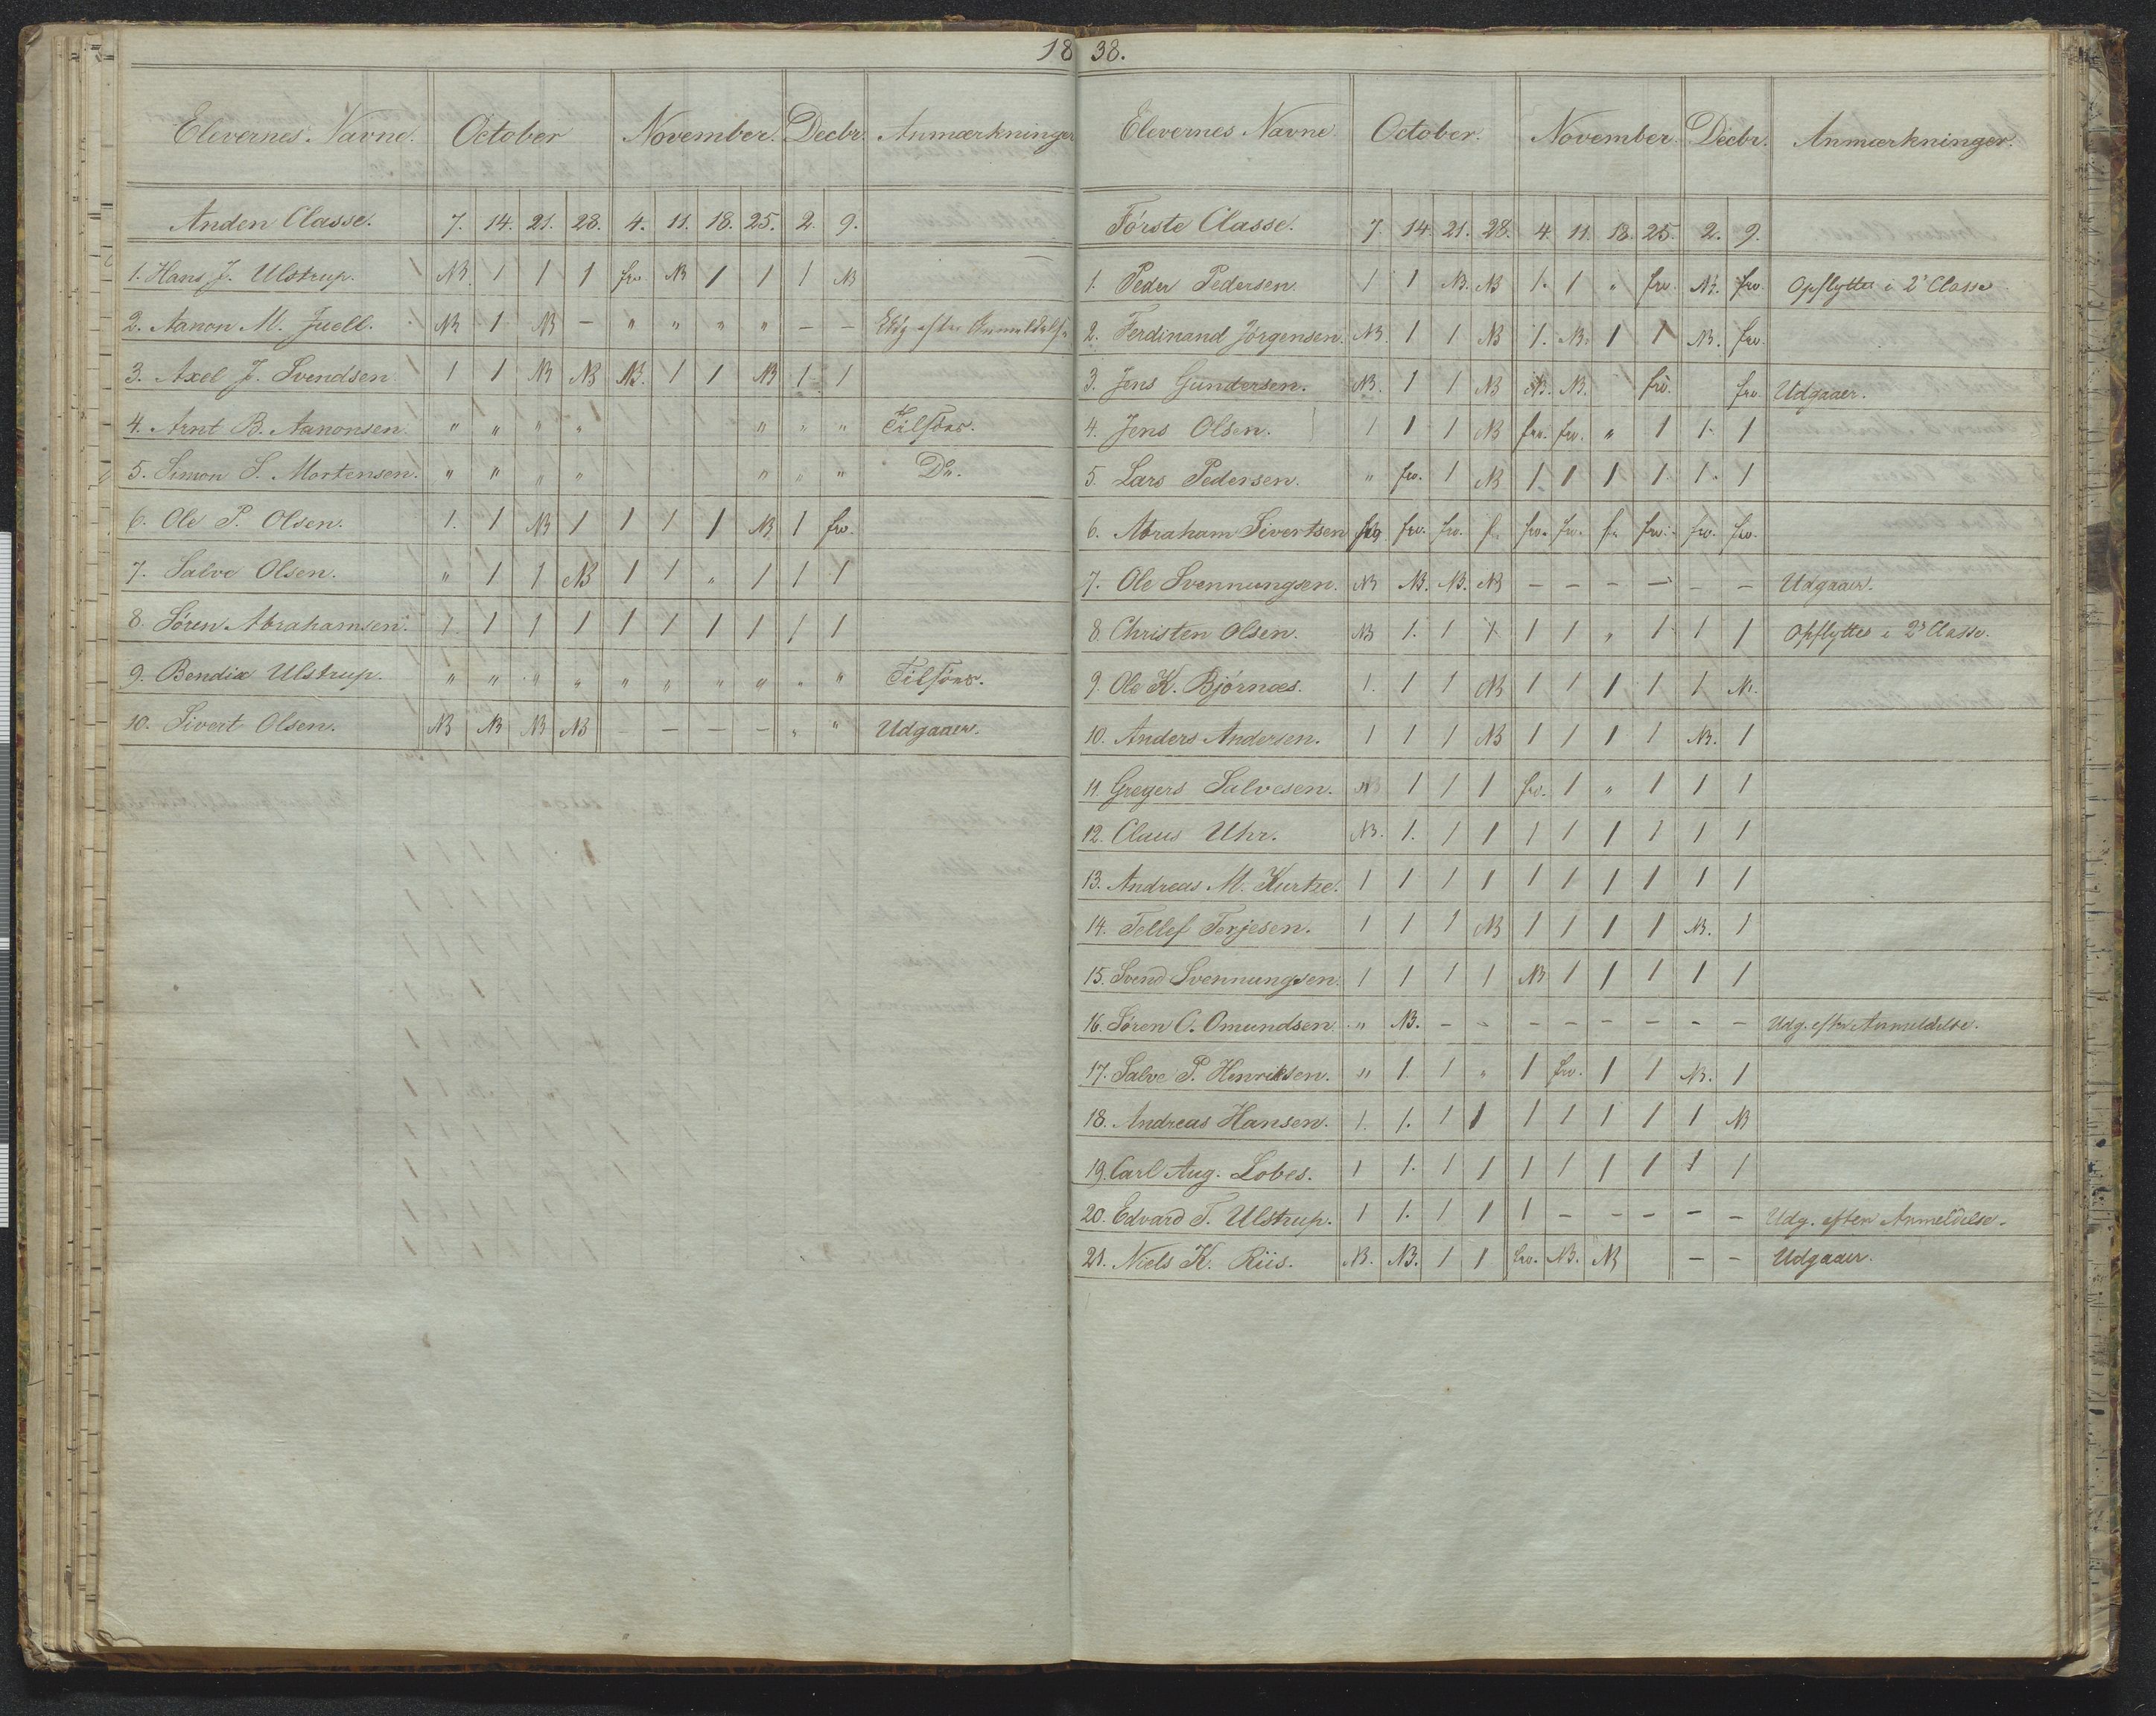 1838.
Elevernes Navne. October November. Decbr. Anmærkninger
Anden Classe. 7. 14. 21. 28. 4. 11. 18. 25. 2. 9.
1. Hans J. Ulstrup. NB. 1 1 1 frv. NB 1 1 1 NB
2. Aanon M. Juell. NB 1 NB – " " " " – – efter Anmeldelse
3. Axel J. Svendsen 1 1 NB NB NB. 1 1 NB 1 1
4. Arnt B. Aanonsen. " " " " " " " Tilsöes.
5. Simon S. Mortensen. " " " " " " " Do.
6. Ole P. Olsen. 1. 1 NB 1 1 1 1 NB 1 frv.
7. Salve Olsen. " 1 1 NB 1 1 " 1 1 1
8. Søren Abrahamsen. 1 1 1 1 1 1 1 1 1 1
9. Bendix Ulstrup. " " " " " " " " " " Tilsöes.
10. Sivert Olsen. NB NB NB NB – – – – " " Udgaaer.
Elevernes Navne. October. November Decbr. Anmærkninger.
Første Classe. 7. 14. 21. 28. 4. 11. 18. 25. 2. 9.
1. Peder Pedersen. 1 1 NB. NB 1. 1 " frv. NB. frv. Opflyttes i 2' Classe
2. Ferdinand Jørgensen. NB. 1 1 NB 1. NB. 1 1 NB. frv.
3. Jens Gundersen. NB. 1 1 NB NB. NB. frv. frv. Udgaaer.
4. Jens Olsen. 1 1 1 NB frv. frv. " 1 1. 1
5. Lars Pedersen. " frv. 1 NB 1 1 1 1 1. 1
6. Abraham Sivertsen frv. frv. frv. f. frv. frv. fr. frv. frv. frv.
7. Ole Svennungsen. NB NB. NB. NB – – – – – – Udgaaer.
8. Christen Olsen. NB 1. 1 1 1 1 " 1 1 1 Opflyttes i 2' Classe.
9. Ole K. Bjørnæs. 1. 1 1 NB 1 1 1 1 1 NB.
10. Anders Andersen. 1 1 1 NB 1 1 1 1 NB. 1
11. Gregers Salvesen. NB 1 1 1 frv. 1 " 1 1 1
12. Claus Uhr. NB. 1. 1 1 1 1 1 1 1 1
13. Andreas M. Kurtze. 1 1 1 1 1 1 1 1 1 1
14. Tellef Terjesen. 1 1 1 NB 1 1 1 1 NB. 1
15. Svend Svennungsen. 1 1 1 1 NB 1 1 1 1 1
16. Søren C. Omundsen. " NB. – – – – – – – – Udg. efter Anmeldelse.
17. Salve P. Henriksen. " 1. 1 " 1 frv. 1 1 NB. 1
18. Andreas Hansen. 1. 1. 1 1 1 1 1 1 1 NB
19. Carl Aug. Lobes. 1 1. 1 1 1 1 1 1 1 1
20. Edvard T. Ulstrup. 1 1. 1 1 1 – – – – – Udg. efter Anmeldelse.
21. Niels K. Riis. NB. NB. 1 1 frv. NB. NB – – Udgaaer.